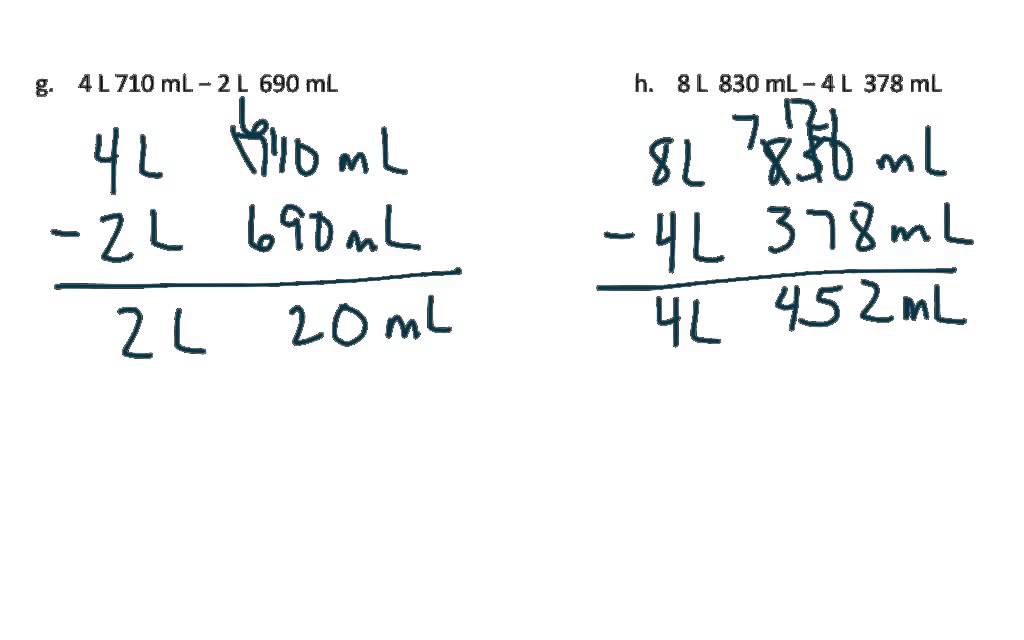 g. 4 L 710 mL – 2 L 690 mL
6
4 L 7110 mL
- 2 L 690 mL
2 L 20 mL
h. 8 L 830 mL – 4 L 378 mL
7 12 1
8 L 830 mL
- 4 L 378 mL
4 L 452 mL